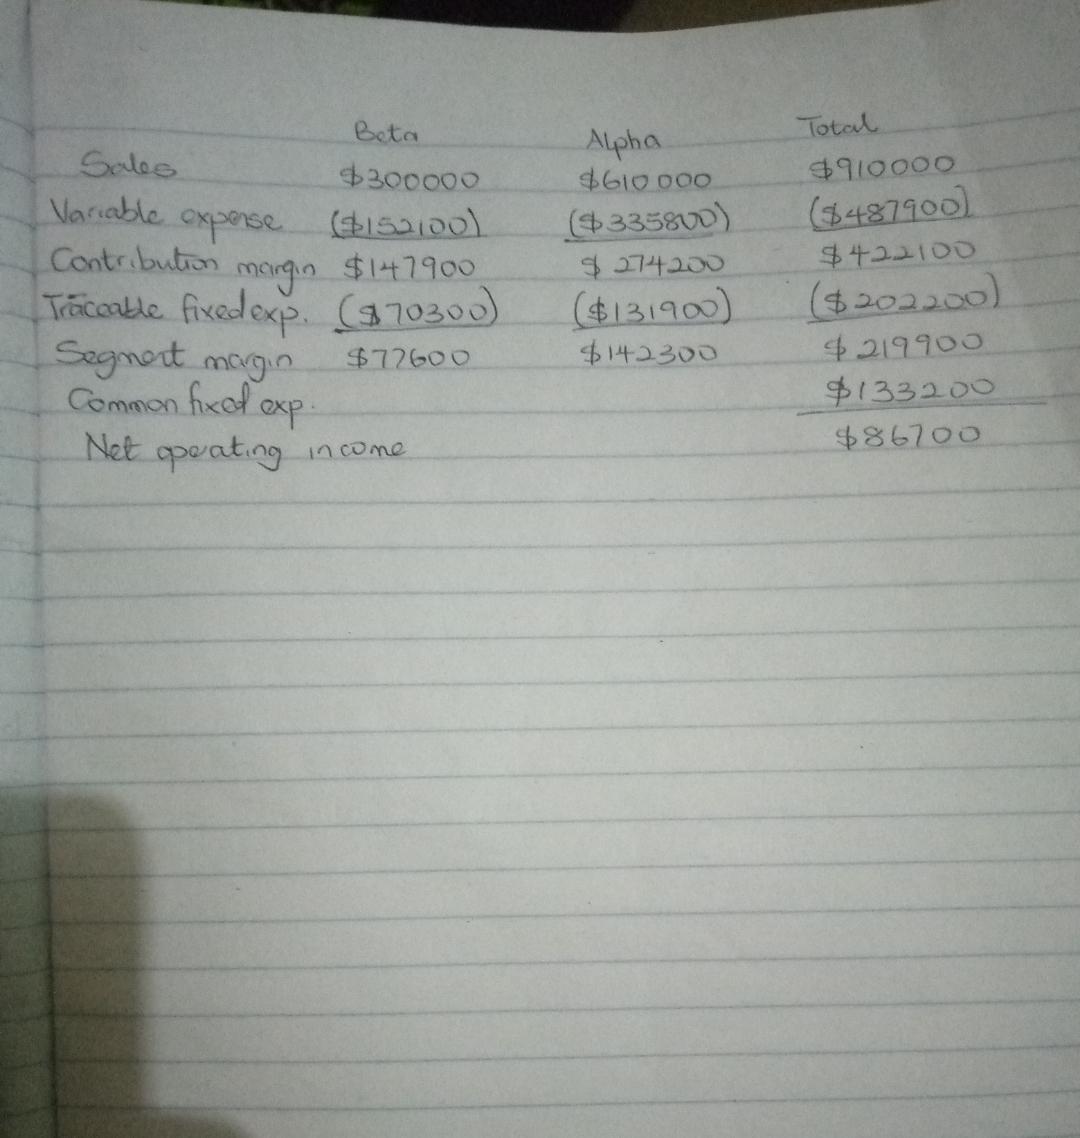 Beta Alpha Total
Sales $300000 $610000 $910000
Variable expense ($152100) ($335800) ($487900)
Contribution margin $147900 $274200 $422100
Traceable fixed exp. ($70300) ($131900) ($202200)
Segment margin $77600 $142300 $219900
Common fixed exp. $133200
Net operating income $86700